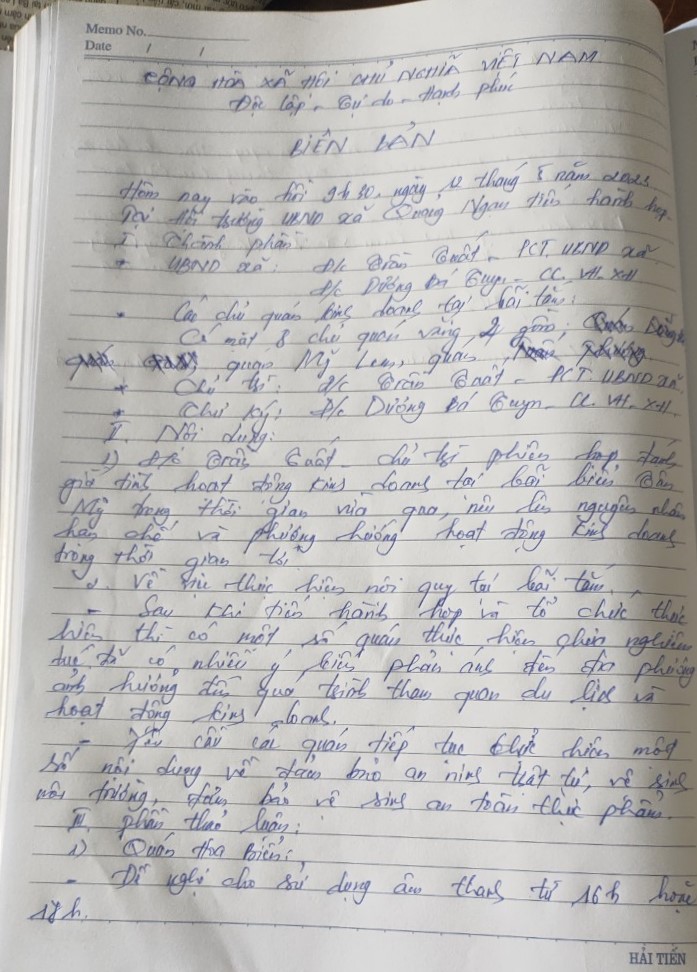 Memo No.
Date / /
CỘNG HOÀ XÃ HỘI CHỦ NGHĨA VIỆT NAM
Độc lập - Tự do - Hạnh phúc
BIÊN BẢN
Hôm nay vào hồi 9h30, ngày 12 tháng 5 năm 2023
Tại hội trường UBND xã Quảng Ngạn tiến hành họp.
I. Thành phần
* UBND xã: Đ/c Trần Quất - PCT. UBND xã
Đ/c Dương Bá Tuyn - CC. VH-XH
* Các chủ quán kinh doanh tại bãi tắm:
Có mặt 8 chủ quán vắng, 2 gồm:
quán Mỹ Len, quán
* Chủ trì: Đ/c Trần Quất - PCT. UBND xã.
* Thư ký: Đ/c Dương Bá Tuyn - CC. VH-XH.
II. Nội dung:
1) Đ/c Trần Quất - chủ trì phiên họp đánh
giá tình hoạt động kinh doanh tại bãi biển Tân
Mỹ trong thời gian vừa qua, nêu lên nguyên nhân
hạn chế và phương hướng hoạt động kinh doanh
trong thời gian tới
2. Về việc thực hiện nội quy tại bãi tắm.
- Sau khi tiến hành họp và tổ chức thực
hiện thì có một số quán thực hiện chưa nghiêm
túc, đã có nhiều ý kiến phản ánh đến địa phương
ảnh hưởng đến quá trình tham quan du lịch và
hoạt động kinh doanh.
- Yêu cầu các quán tiếp tục thực hiện một
số nội dung về đảm bảo an ninh trật tự, vệ sinh
môi trường, đảm bảo vệ sinh an toàn thực phẩm.
III. phần thảo luận:
1) Quán Hoa Biển:
- Đề nghị cho sử dụng âm thanh từ 16h hoặc
17h.
HẢI TIẾN